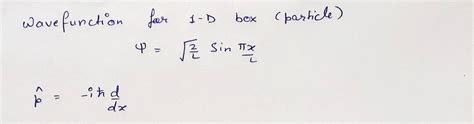 Wavefunction for 1-D box (particle)
ψ = √2/L Sin πx/L
p̂ = -iħ d/dx